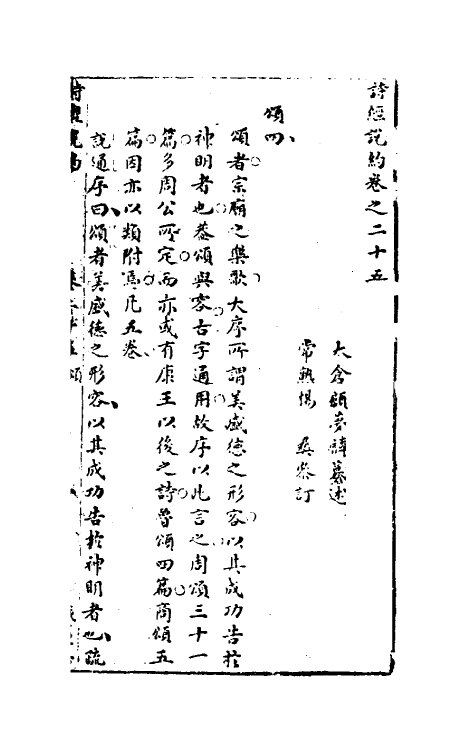 詩經說約卷之二十五
太倉顧夢麟纂述
常熟楊彝參訂
頌四
頌者宗廟之樂歌大序所謂美盛德之形容以其成功告於
神明者也蓋頌與容古字通用故序以此言之周頌三十一
篇多周公所定而亦或有康王以後之詩魯頌四篇商頌五
篇因亦以類附焉凡五卷
說通序曰頌者美盛德之形容以其成功告於神明者也疏